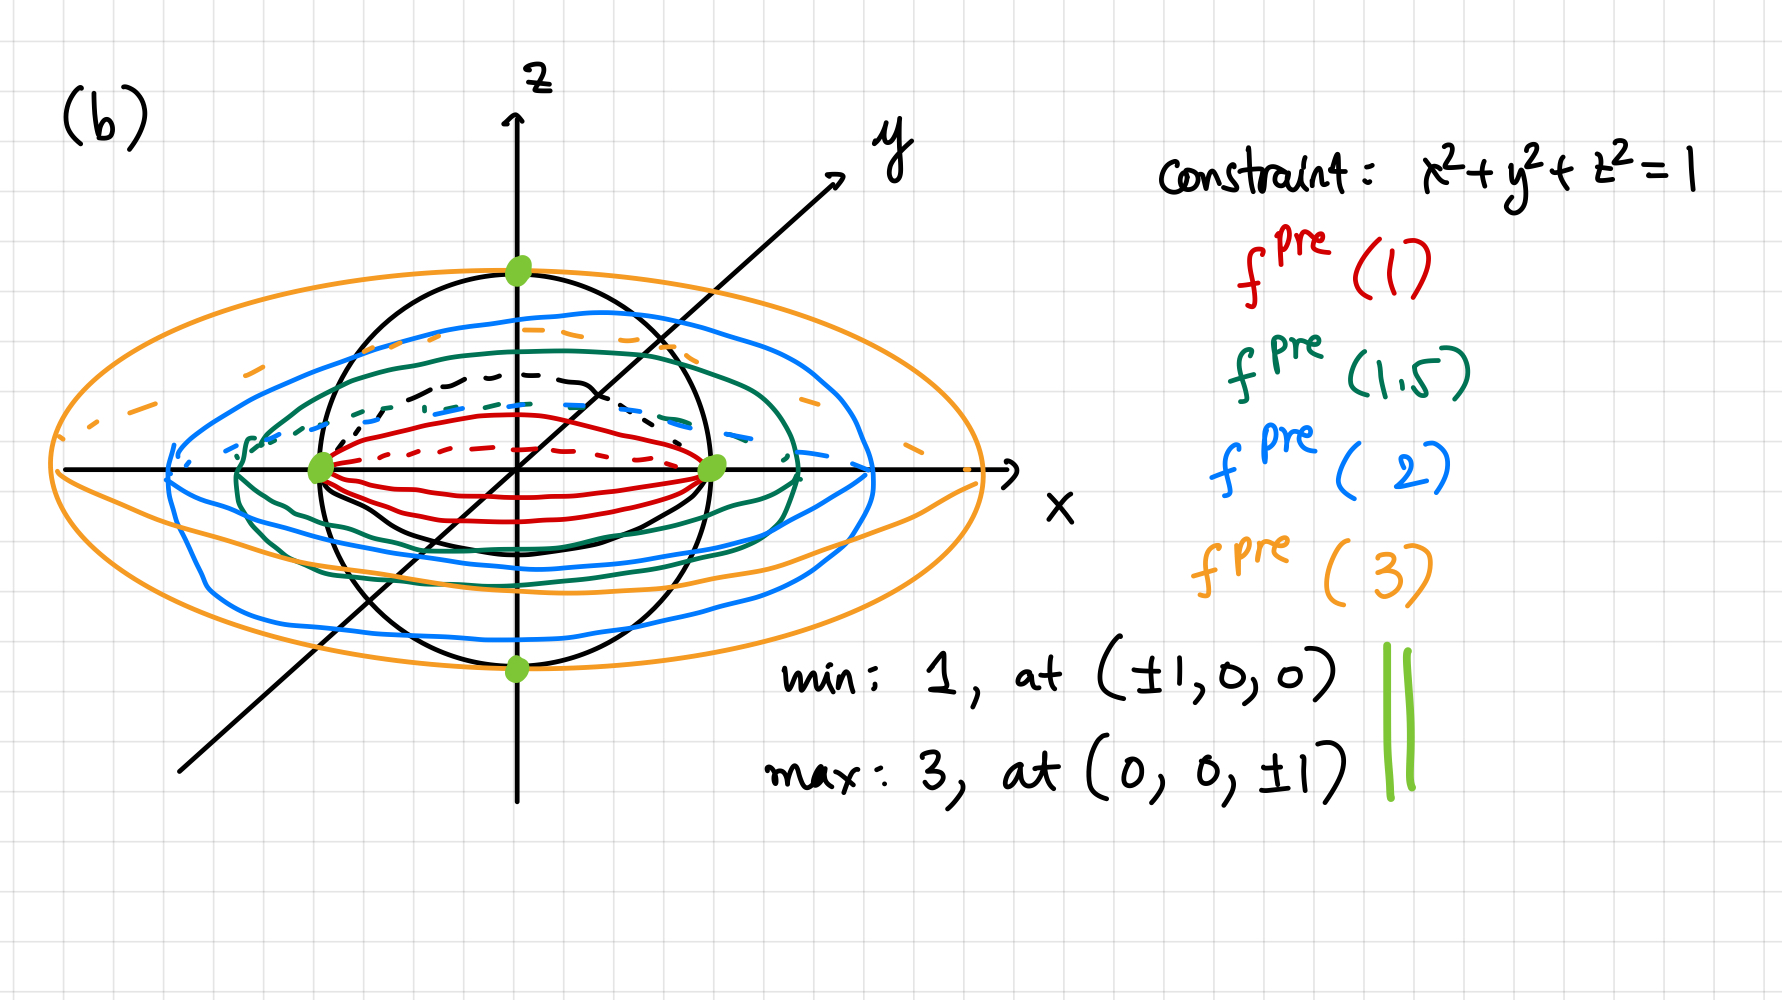 (b)
z
y
x
constraint: x²+y²+z²=1
f^pre (1)
f^pre (1.5)
f^pre (2)
f^pre (3)
min: 1, at (±1,0,0)
max: 3, at (0, 0, ±1)